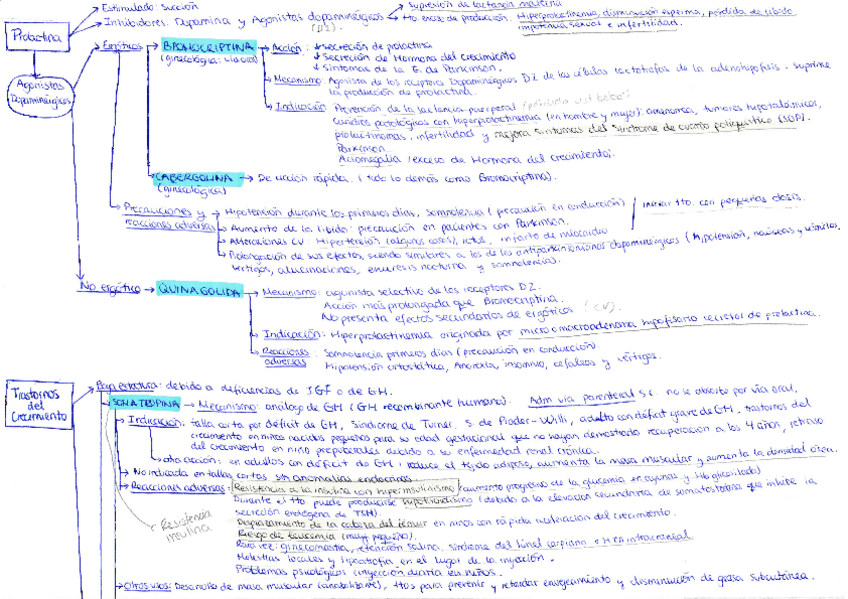 Prolactina
Estimulado: succión
Inhibidores: Dopamina y Agonistas dopaminérgicos (D2).
Supresión de lactancia materna
tto. exceso de producción: Hiperprolactinemia, disminución esperma, pérdida de libido
impotencia sexual e infertilidad.
Agonistas
Dopaminérgicos
Ergóticos
BROMOCRIPTINA
Acción: ↓ secreción de prolactina
↓ Secreción de Hormona del Crecimiento
↓ síntomas de la E. de Parkinson.
Mecanismo: Agonista de los receptores Dopaminérgicos D2 de las células lactotrofas de la adenohipófisis. suprime
la producción de prolactina.
Indicación: Prevención de la lactancia puerperal
cuadros patológicos con hiperprolactinemia (en hombre y mujer): amenorrea, tumores hipotalámicos,
prolactinomas, infertilidad y mejora síntomas del Síndrome de ovario poliquístico (SOP).
Parkinson.
Acromegalia (exceso de Hormona del crecimiento).
CABERGOLINA
(ginecológica)
De acción rápida. (todo lo demás como Bromocriptina).
Precauciones y
reacciones adversas
Hipotensión durante los primeros días, somnolencia (precaución en conducción)
Iniciar tto. con pequeñas dosis.
Aumento de la libido: precaución en pacientes con Parkinson.
Alteraciones CV: Hipertensión (algunos casos), ictus, infarto de miocardio
Prolongación de sus efectos, siendo similares a los de los antiparkinsonianos dopaminérgicos (hipotensión, náuseas y vómitos,
vértigos, alucinaciones, enuresis nocturna y somnolencia).
No ergótico
QUINAGOLIDA
Mecanismo: agonista selectivo de los receptores D2.
Acción más prolongada que Bromocriptina.
No presenta efectos secundarios de ergóticos (CV)
Indicación: Hiperprolactinemia originada por micro o macroadenoma hipofisario secretor de prolactina.
Reacciones
adversas
Somnolencia primeros días (precaución en conducción)
Hipotensión ortostática, Anorexia, insomnio, cefaleas y vértigos.
Trastornos
del
Crecimiento
Baja estatura: debido a deficiencias de IGF o de GH.
SOMATROPINA
Mecanismo: análogo de GH (GH recombinante humano). Adm vía parenteral S.C. no se absorbe por vía oral.
Indicación: talla corta por déficit de GH, síndrome de Turner, S. de Prader-Willi, adulto con déficit grave de GH, trastornos del
crecimiento en niños nacidos pequeños para su edad gestacional que no hayan demostrado recuperación a los 4 años, retraso
del crecimiento en niño prepuberales debido a su enfermedad renal crónica.
otra acción: en adultos con déficit de GH, reduce el tejido adiposo, aumenta la masa muscular y aumenta la densidad ósea.
No indicada en tallas cortas sin anomalías endocrinas
Reacciones adversas: Resistencia a la insulina con hiperinsulinismo (aumento progresivo de la glucemia en ayunas y Hb glicosilada)
Durante el tto puede producirse hipotiroidismo (debido a la elevación secundaria de somatostatina que inhibe la
secreción endógena de TSH).
Desplazamiento de la cabeza del fémur en niños con rápida aceleración del crecimiento.
Riesgo de leucemia (muy pequeño).
Rara vez: ginecomastia, retención salina, síndrome del túnel carpiano e HTA intracraneal
Molestias locales y lipoatrofia en el lugar de la inyección.
Problemas psicológicos (inyección diaria en niños.
Resistencia
insulina
Otros usos: Desarrollo de masa muscular (anabolizante), ttos para prevenir y retardar envejecimiento y disminución de grasa subcutánea.